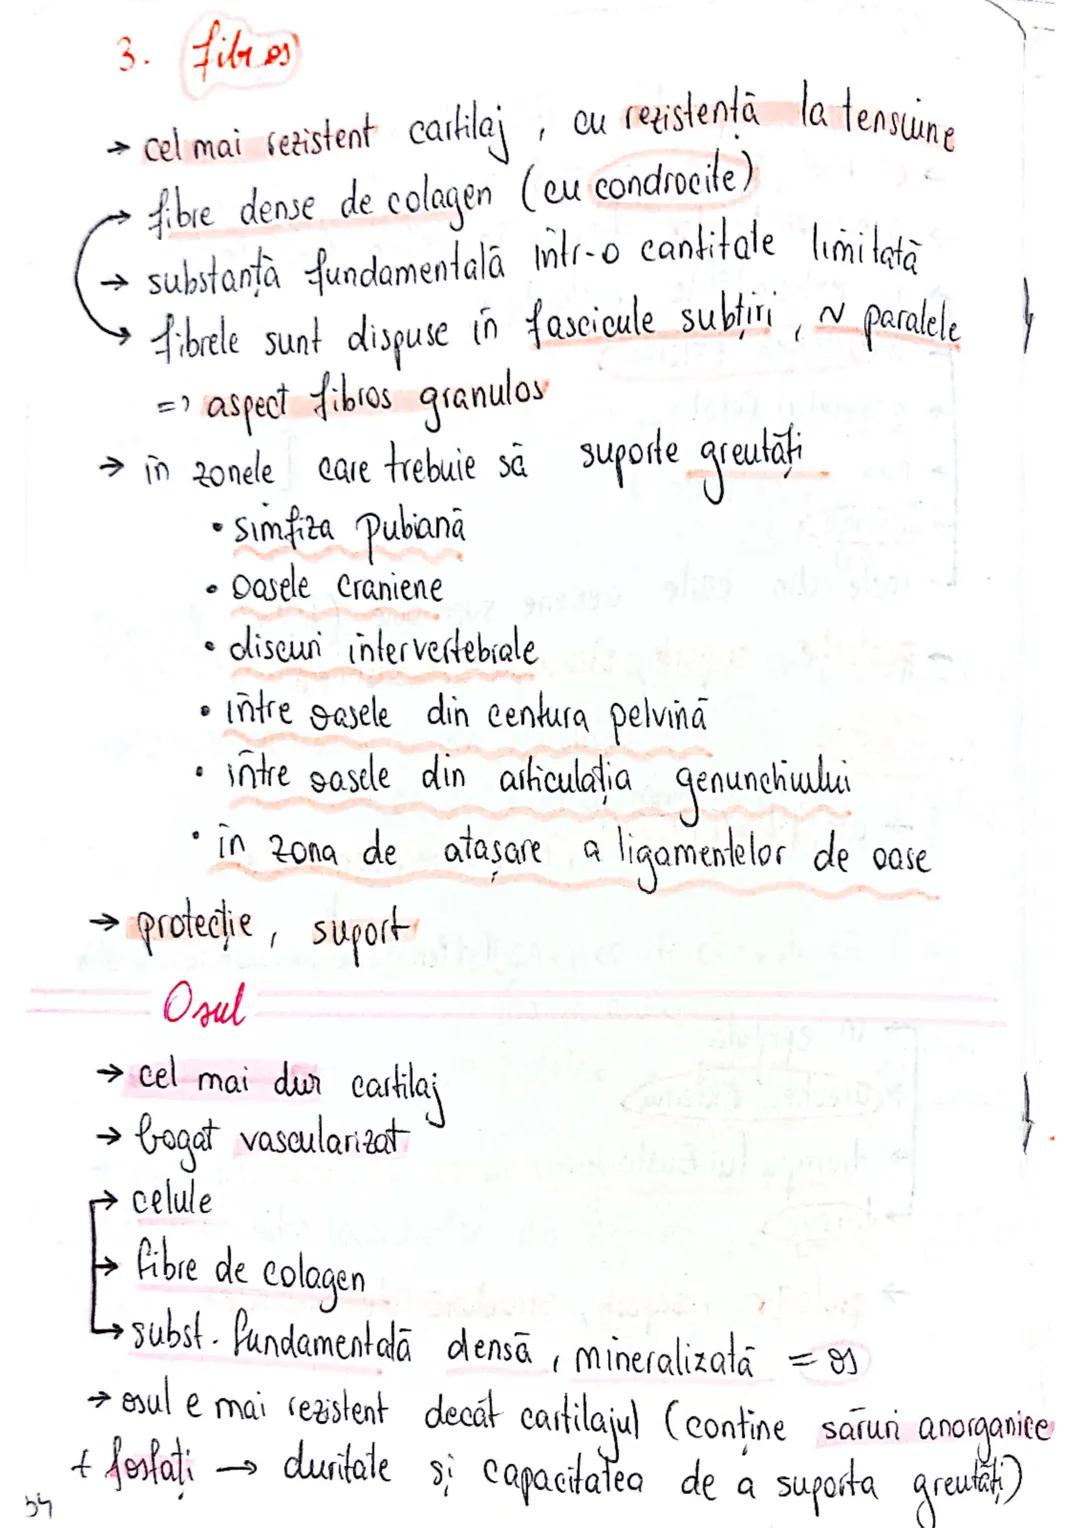 3. fibros
→ cel mai rezistent cartilaj, cu rezistență la tensiune
→ fibre dense de colagen (cu condrocite)
→ substanță fundamentală într-o cantitate limitată
→ fibrele sunt dispuse în fascicule subțiri, ~ paralele
=> aspect fibros granulos
→ în zonele care trebuie să suporte greutăți
• simfiza pubiană
• oasele craniene
• discuri intervertebrale
• între oasele din centura pelvină
• între oasele din articulația genunchiului
• în zona de atașare a ligamentelor de oase
→ protecție, suport
Osul
→ cel mai dur cartilaj
→ bogat vascularizat
→ celule
→ fibre de colagen
→ subst. fundamentală densă, mineralizată = os
→ osul e mai rezistent decât cartilajul (conține săruri anorganice
+ fosfați → duritate și capacitatea de a suporta greutăți)
34